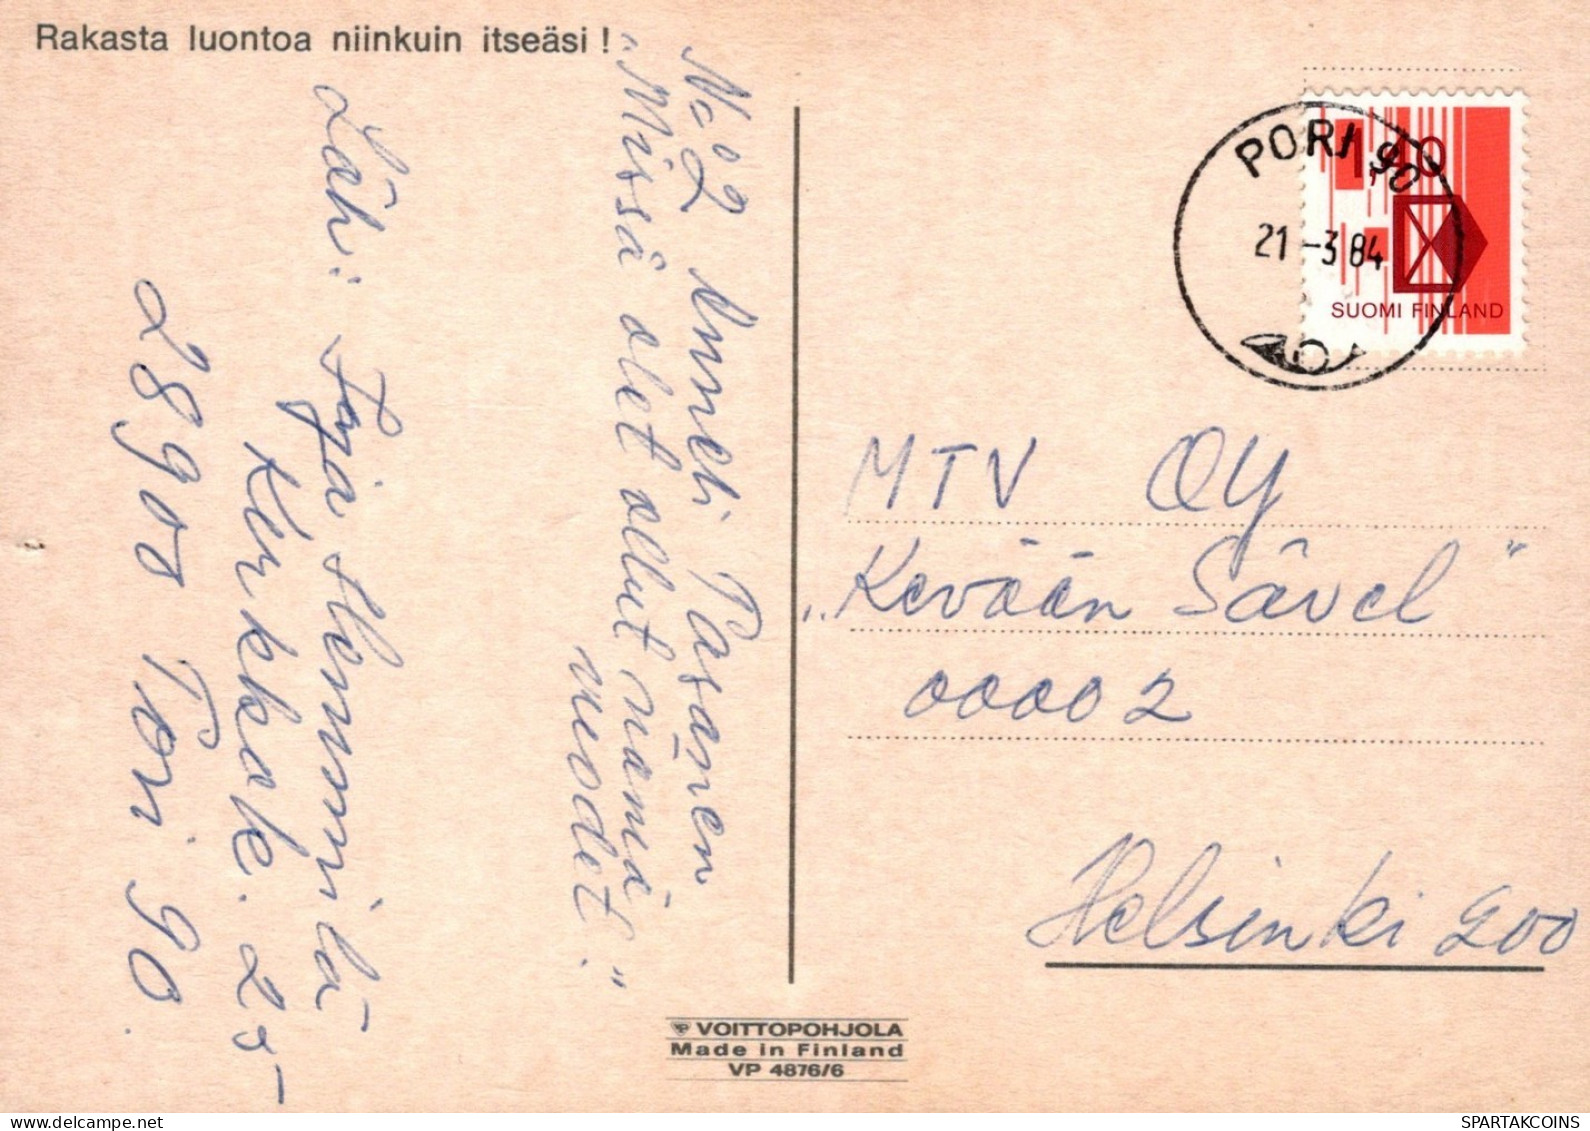 Rakasta luontoa niinkuin itseäsi !
No 2 Anneli Pasanen
"Missä olet ollut nämä
vuodet."
Läh: Hemmilä
Kerkkok. 25
28900 Pori 90.
PORI 90
21 -3 84
1,40
SUOMI FINLAND
MTV OY
"Kevään Sävel"
00002
Helsinki 200
VOITTOPOHJOLA
Made in Finland
VP 4876/6
SPARTAKCOINS